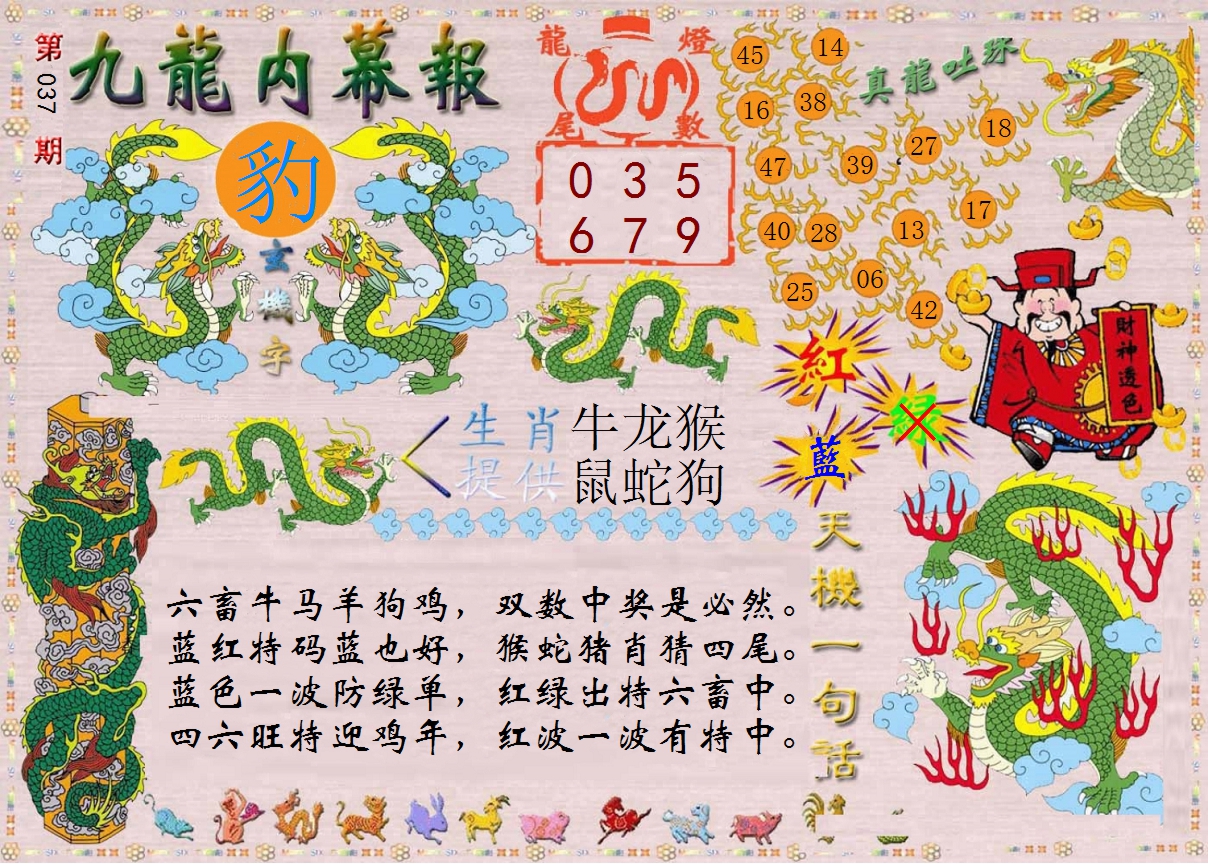 第037期
九龍内幕報
豹
玄機字
龍燈尾數
0 3 5
6 7 9
真龍吐珠
45 14
16 38
47 39 27 18
40 28 13 17
25 06 42
財神透色
紅
绿
藍
生肖提供
牛龙猴
鼠蛇狗
天機一句話
六畜牛马羊狗鸡，双数中奖是必然。
蓝红特码蓝也好，猴蛇猪肖猜四尾。
蓝色一波防绿单，红绿出特六畜中。
四六旺特迎鸡年，红波一波有特中。